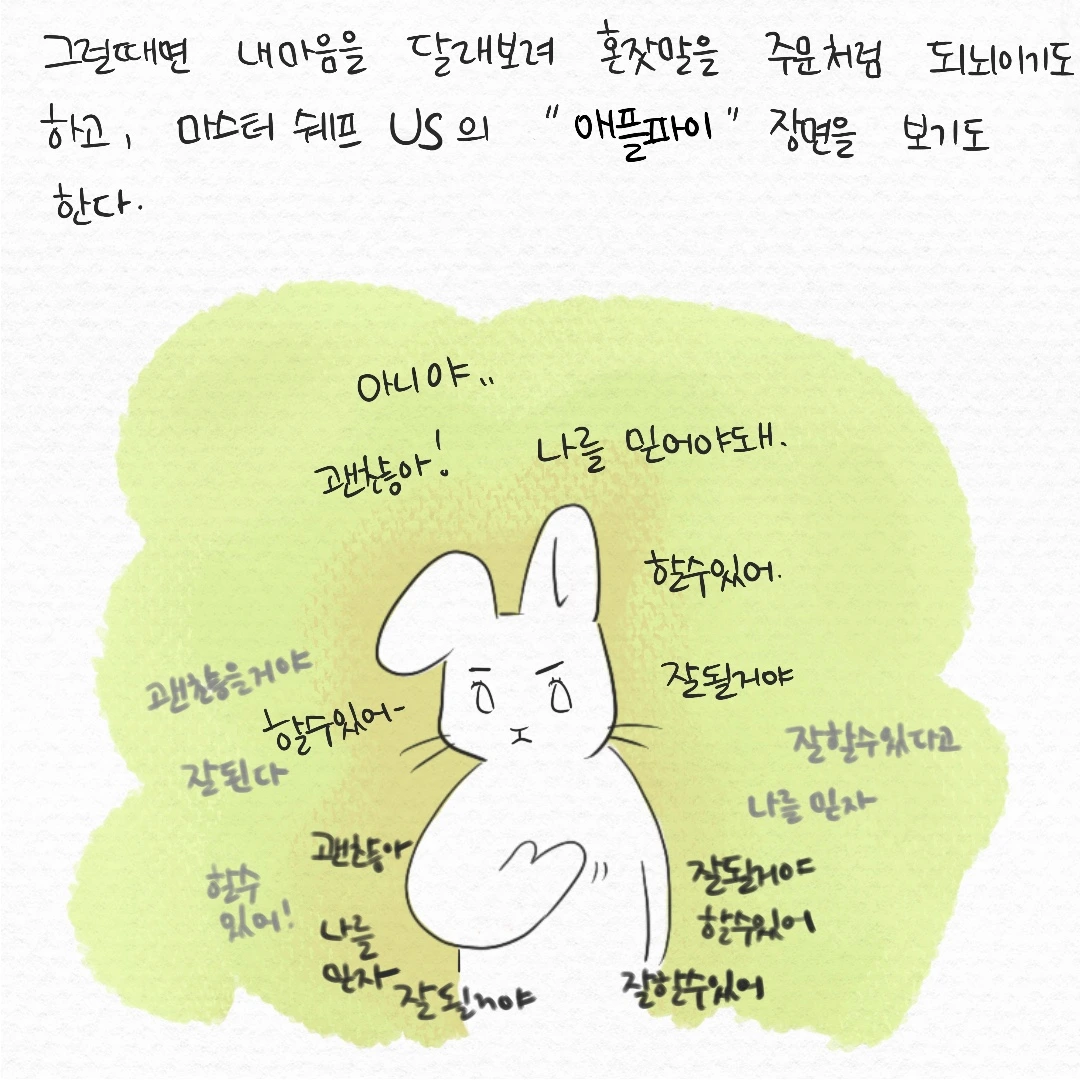 그럴때면 내마음을 달래보려 혼잣말을 주문처럼 되뇌이기도
하고, 마스터 쉐프 US의 "애플파이" 장면을 보기도
한다.
아니야..
괜찮아!
나를 믿어야돼.
할수있어.
괜찮을거야
잘될거야
할수있어-
잘된다
잘할수있다고
나를 믿자
괜찮아
잘될거야
할수
있어!
할수있어
나를
믿자
잘될거야
잘할수있어